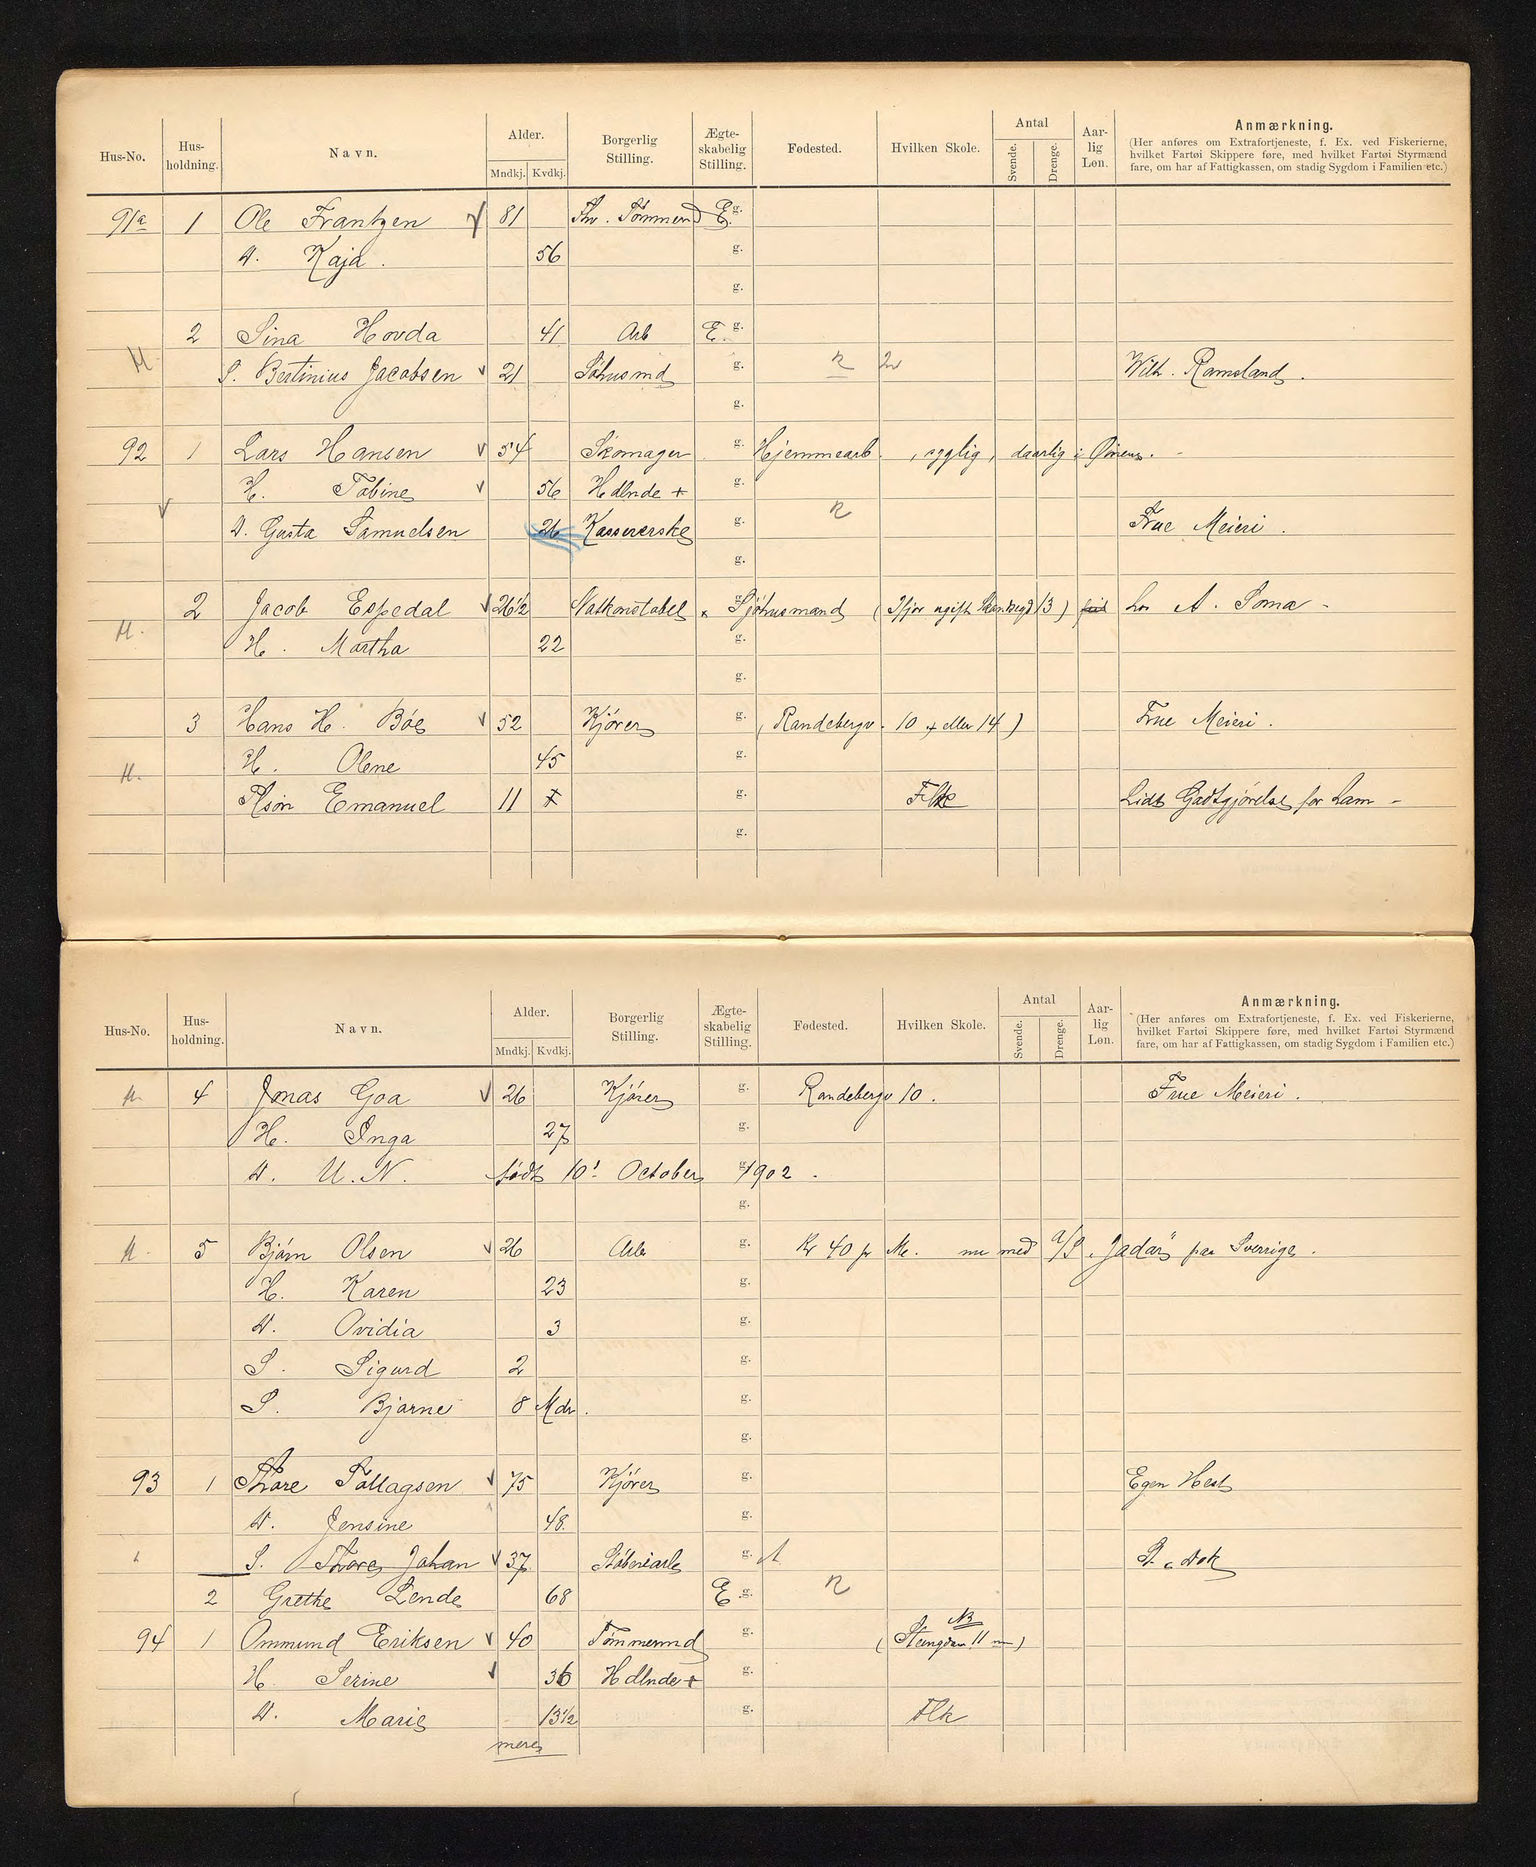 Hus-No. Hus-holdning. Navn. Alder. Mndkj. Kvdkj. Borgerlig Stilling. Ægte-skabelig Stilling. Fødested. Hvilken Skole. Antal Svende. Drenge. Aar-lig Løn. Anmærkning.
(Her anføres om Extrafortjeneste, f. Ex. ved Fiskerierne,
hvilket Fartøi Skippere føre, med hvilket Fartøi Styrmænd
fare, om har af Fattigkassen, om stadig Sygdom i Familien etc.)
91a 1 Ole Frantzen 81 Fhv. Tømmermd E g.
D. Kaja. 56 g.
g.
2 Sina Hovda 41 Arb E. g.
H S. Bertinius Jacobsen 21 Söhusmd g. n Wilh. Ramsland.
g.
92 1 Lars Hansen 54 Skomager g. Hjemmearb., syglig, daarlig i Øinene.
H. Tobine 56 Hdlnde + g.
D. Gusta Samuelsen 26 Kassererske g. n Frue Meieri.
g.
2 Jacob Espedal 26 1/2 Natkonstabel x g. Sjöhusmand (Ifjor ugift 13) hos A. Soma
H. H. Martha 22 g.
g.
3 Hans H. Böe 52 Kjörer g. (Randebergv. 10 + eller 14) Frue Meieri.
H. H. Olene 45 g.
Plsön Emanuel 11 g. Flk Lidt Godtgjörelse for ham
g.
Hus-No. Hus-holdning. Navn. Alder. Mndkj. Kvdkj. Borgerlig Stilling. Ægte-skabelig Stilling. Fødested. Hvilken Skole. Antal Svende. Drenge. Aar-lig Løn. Anmærkning.
(Her anføres om Extrafortjeneste, f. Ex. ved Fiskerierne,
hvilket Fartøi Skippere føre, med hvilket Fartøi Styrmænd
fare, om har af Fattigkassen, om stadig Sygdom i Familien etc.)
H. 4 Jonas Goa 26 Kjörer g. Randebergv 10. Frue Meieri.
H. Inga 27 g.
D. U. N. födt 10' October g. 1902.
g.
H. 5 Björn Olsen 26 Arb g. Kr 40 pr M. nu med D/S „Jadar" paa Sverrige.
H. Karen 23 g.
D. Ovidia 3 g.
S. Sigurd 2 g.
S. Bjarne 8 Mdr. g.
g.
93 1 Thore Tollagsen 75 Kjörer g. Egen Hest
D. Jensine 48. g.
S. Thore Johan 37 Stöberiarb g. St. Dok
2 Grethe Lende 68 E g. n
94 1 Ommund Eriksen 40 Tömmermd g. NB
H. Serine 36 Hdlnde + g.
D. Marie 13 1/2 g. Flk
mere